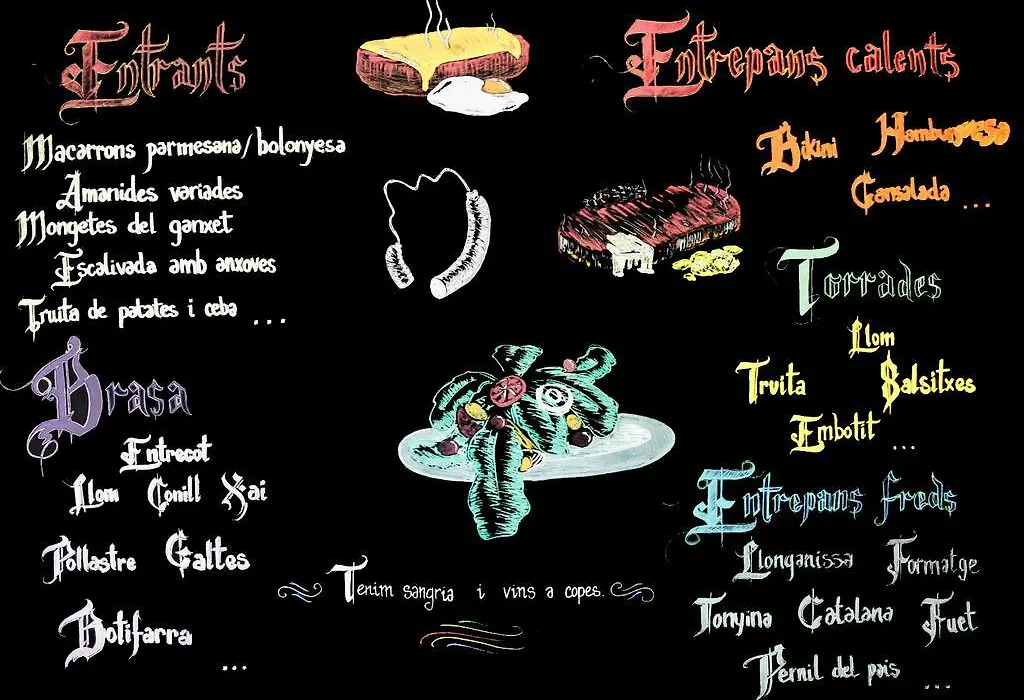 Entrants
Macarrons parmesana/bolonyesa
Amanides variades
Mongetes del ganxet
Escalivada amb anxoves
Truita de patates i ceba ...
Brasa
Entrecot
Llom Conill Xai
Pollastre Galtes
Botifarra
...
Tenim sangria i vins a copes.
Entrepans calents
Bikini Hamburguesa
Cansalada ...
Torrades
Llom
Truita Salsitxes
Embotit ...
Entrepans freds
Llonganissa Formatge
Tonyina Catalana Fuet
Pernil del pais ...